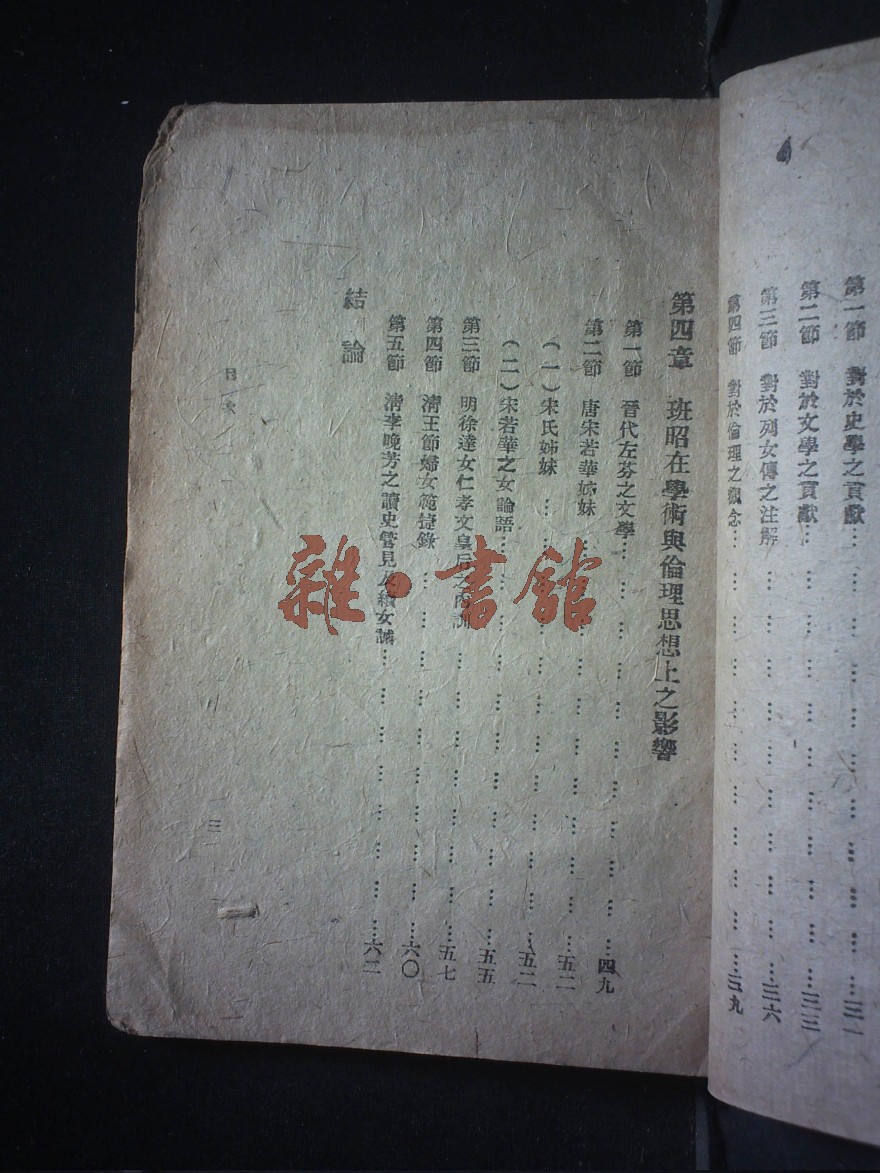 第一節 對於史學之貢獻………………………三一
第二節 對於文學之貢獻………………………三三
第三節 對於列女傳之注解………………………三六
第四節 對於倫理之觀念………………………三九
第四章 班昭在學術與倫理思想上之影響
第一節 晉代左芬之文學………………………四九
第二節 唐宋若華姊妹………………………五二
(一)宋氏姊妹………………………五二
(二)宋若華之女論語………………………五五
第三節 明徐達女仁孝文皇后之內訓………………………五七
第四節 清王節婦女範捷錄………………………六〇
第五節 清李晚芳之讀史管見及續女誡………………………六二
結論
目次
三
雜·書館